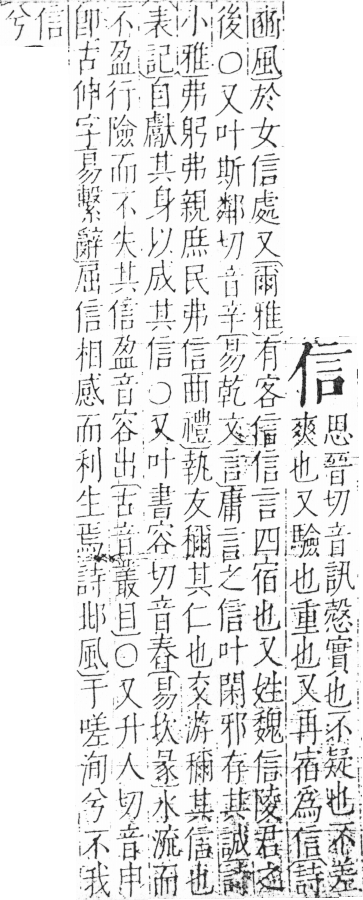 信
思晉切音訊慤實也不疑也不差
爽也又驗也重也又再宿為信詩
豳風於女信處又爾雅有客信信言四宿也又姓魏信陵君之
後○又叶斯鄰切音辛易乾文言庸言之信叶閑邪存其誠詩
小雅弗躬弗親庶民弗信曲禮執友稱其仁也交游稱其信也
表記自獻其身以成其信○又叶書容切音舂易坎彖水流而
不盈行險而不失其信盈音容出古音叢目○又升人切音申
即古伸字易繫辭屈信相感而利生焉詩邶風于嗟洵兮不我
信
兮